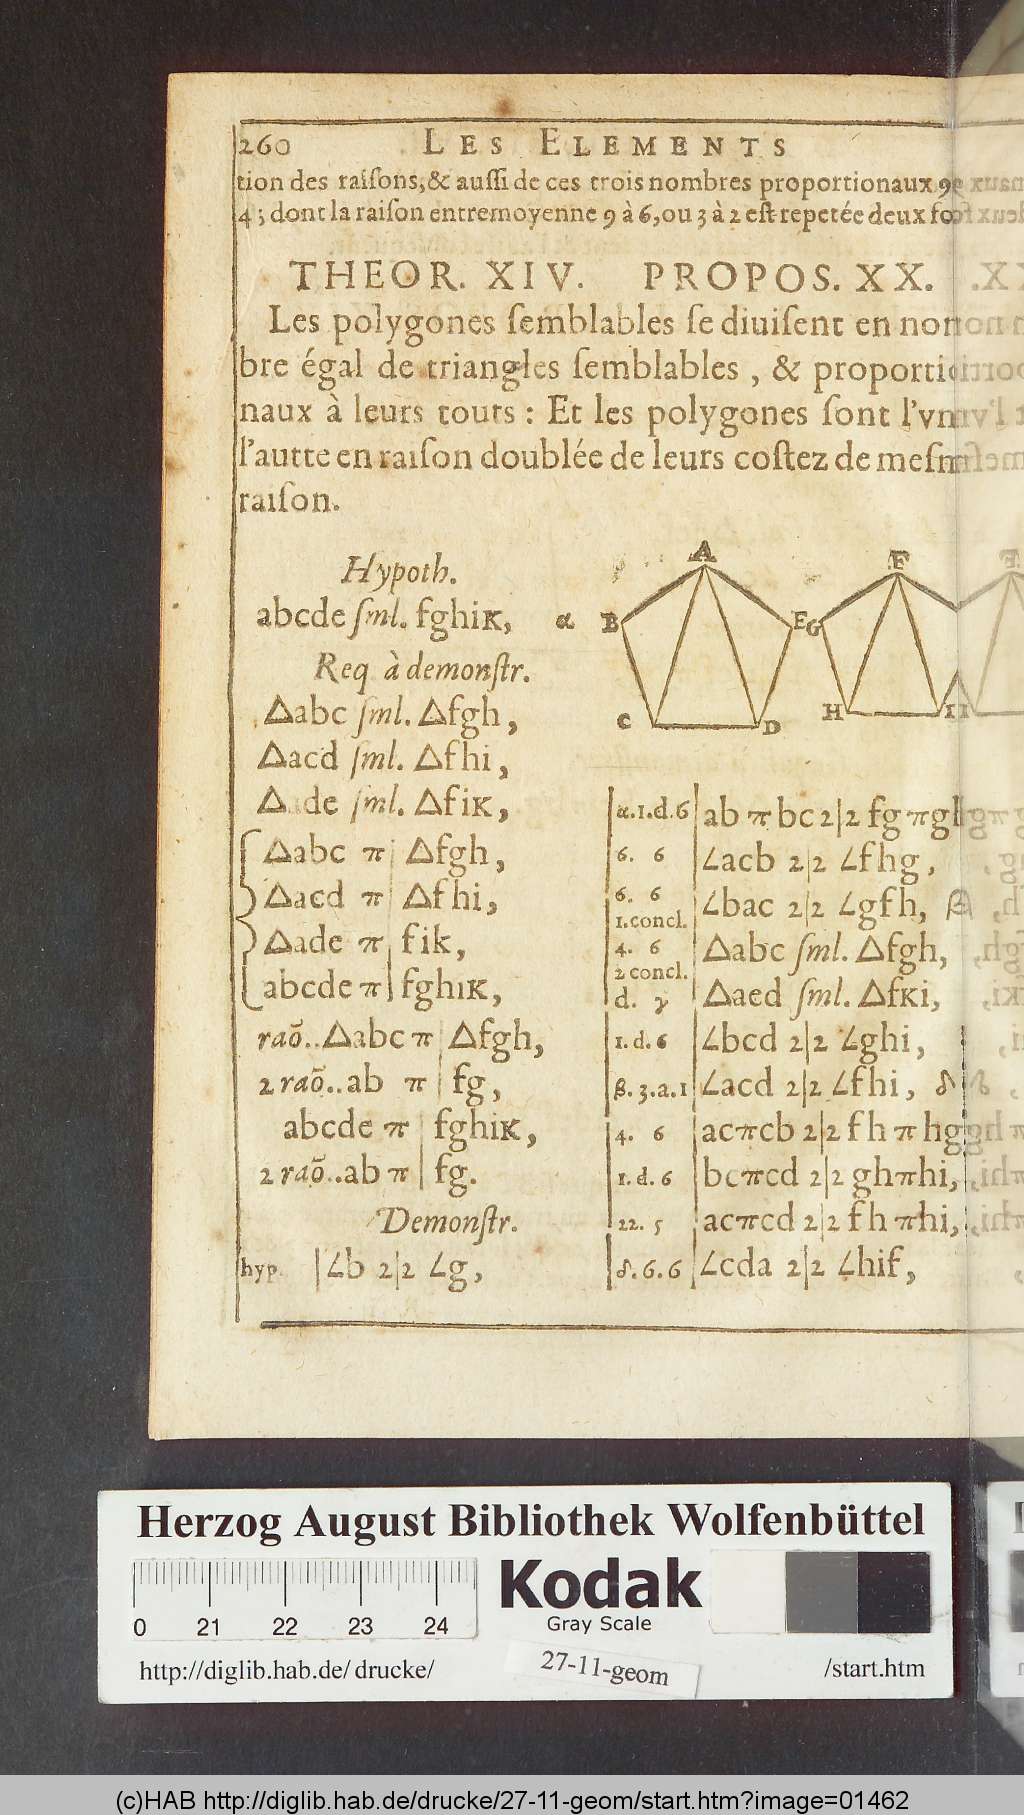 260 LES ELEMENTS
tion des raiſons, & auſſi de ces trois nombres proportionaux 9
4; dont la raiſon entremoyenne 9 à 6, ou 3 à 2 eſt repetée deux
THEOR. XIV. PROPOS. XX.
Les polygones ſemblables ſe diuiſent en
bre égal de triangles ſemblables , & proporti
naux à leurs touts : Et les polygones ſont l'vn
l'autte en raiſon doublée de leurs coſtez de
raiſon.
Hypoth.
abcde ſml. fghiκ, α
Req à demonſtr.
Δabc ſml. Δfgh,
Δacd ſml. Δfhi,
Δade ſml. Δfiκ,
Δabc π | Δfgh,
Δacd π | Δfhi,
Δade π | fik,
abcde π | fghıκ,
raõ.. Δabc π | Δfgh,
2 raõ.. ab π | fg,
abcde π | fghiκ,
2 raõ.. ab π | fg.
Demonſtr.
hyp. | ∠b 2|2 ∠g,
A
B E
C D
F
G
H I
α.1.d.6 | ab π bc 2|2 fg π
6. 6 | ∠acb 2|2 ∠fhg,
6. 6
1.concl. | ∠bac 2|2 ∠gfh, β
4. 6
2 concl. | Δabc ſml. Δfgh,
d. γ | Δaed ſml. Δfκi,
1. d. 6 | ∠bcd 2|2 ∠ghi,
β. 3. a. 1 | ∠acd 2|2 ∠fhi, δ
4. 6 | acπcb 2|2 fh π hg
1. d. 6 | bcπcd 2|2 ghπhi,
22. 5 | acπcd 2|2 fh πhi,
δ. 6. 6 | ∠cda 2|2 ∠hif,
Herzog August Bibliothek Wolfenbüttel
0 21 22 23 24
Kodak
Gray Scale
http://diglib.hab.de/drucke/ 27-11-geom /start.htm
(c)HAB http://diglib.hab.de/drucke/27-11-geom/start.htm?image=01462